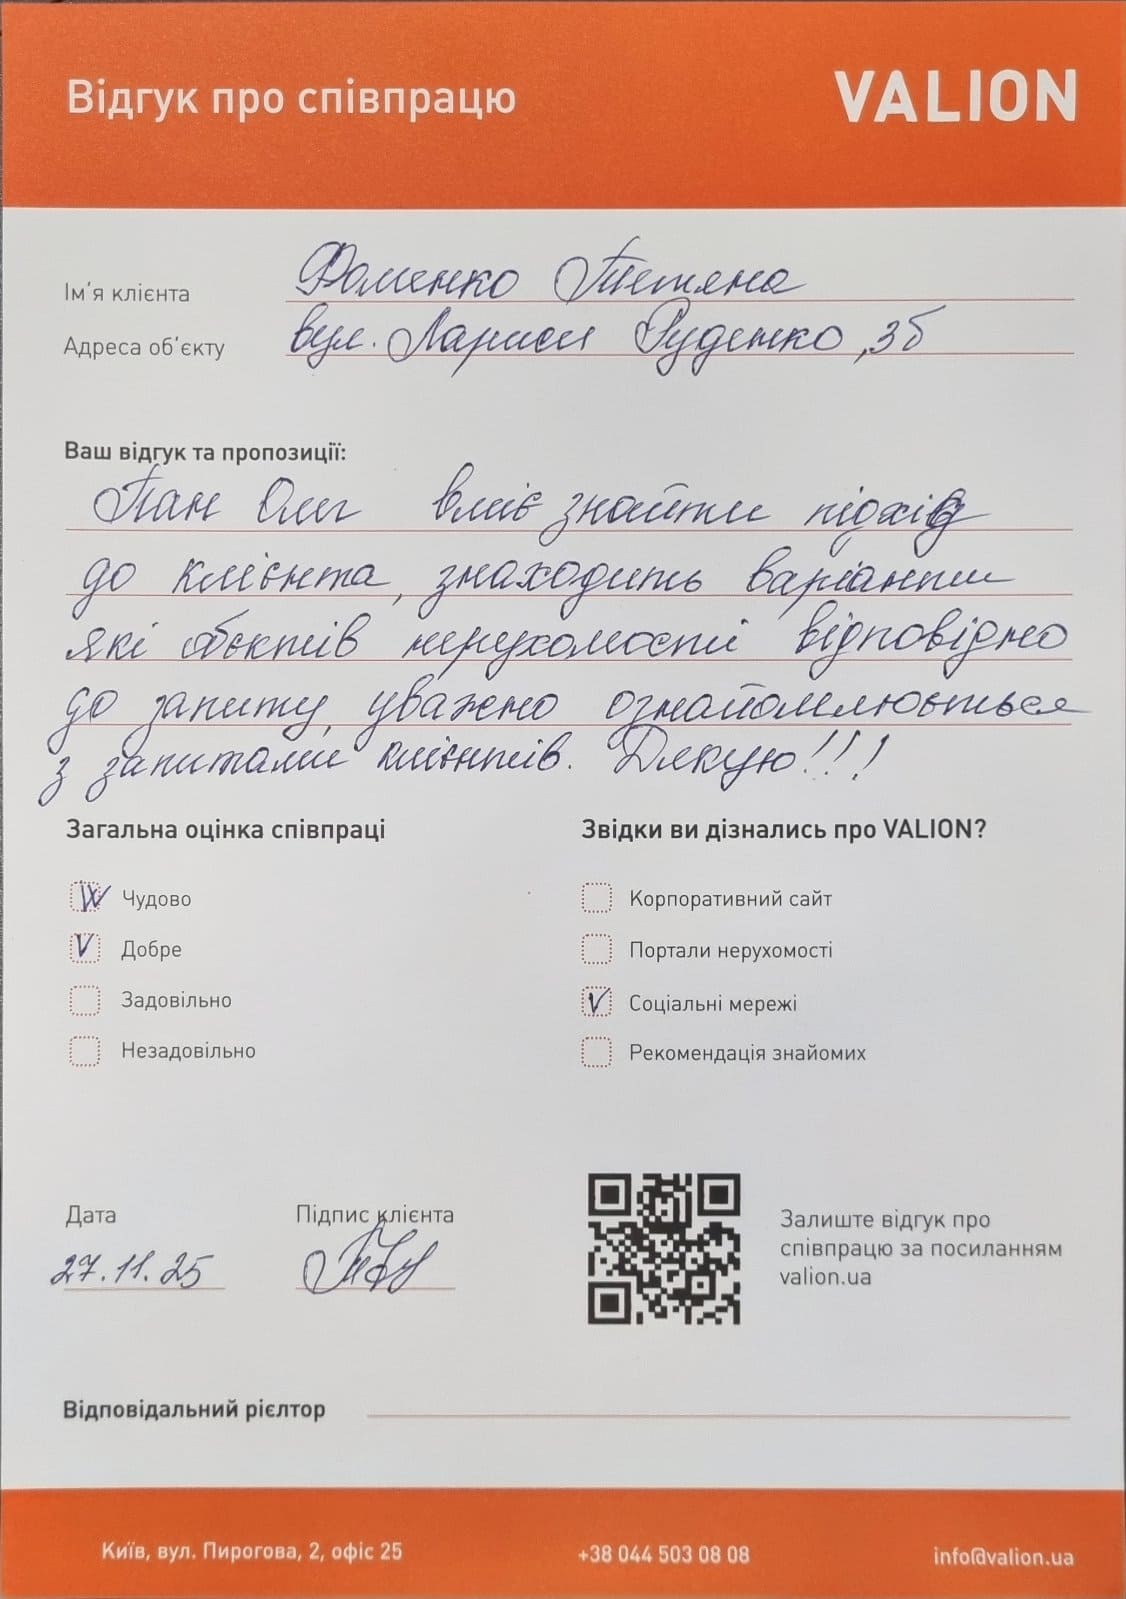 Відгук про співпрацю
VALION
Ім'я клієнта Фоменко Тетяна
Адреса об'єкту вул. Лариси Руденко, 3б
Ваш відгук та пропозиції:
Пан Олег вміє знайти підхід
до клієнта, знаходить варіанти
які обєктів нерухомості відповідно
до запиту, уважно ознайомлюється
з запитами клієнтів. Дякую!!!
Загальна оцінка співпраці
V Чудово
V Добре
Задовільно
Незадовільно
Звідки ви дізнались про VALION?
Корпоративний сайт
Портали нерухомості
V Соціальні мережі
Рекомендація знайомих
Дата
27.11.25
Підпис клієнта
Залиште відгук про
співпрацю за посиланням
valion.ua
Відповідальний рієлтор
Київ, вул. Пирогова, 2, офіс 25
+38 044 503 08 08
info@valion.ua